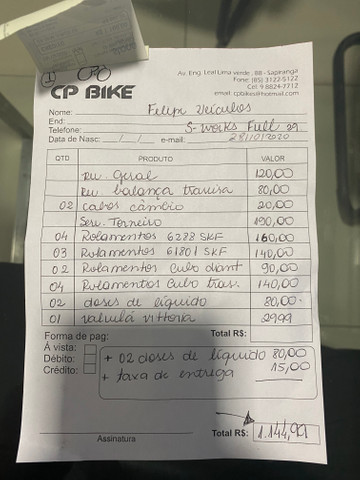 CP BIKE
Av. Eng. Leal Lima verde, 88 - Sapiranga
Fone: (85) 3122-5122
Cel: 9 8824-7712
email: cpbikes@hotmail.com
Nome: Felipe Veículos
End.:
Telefone: S-works Full 29
Data de Nasc: __/__/__ e-mail: 28/10/2020
QTD PRODUTO VALOR
Rev. Geral 120,00
Rev balança traseira 80,00
02 cabos câmbio 20,00
Serv. Torneiro 190,00
04 Rolamentos 6288 SKF 160,00
03 Rolamentos 61801 SKF 140,00
02 Rolamentos Cubo diant 90,00
04 Rolamentos Cubo tras. 140,00
02 doses de líquido 80,00
01 valvula vittoria 29,99
Forma de pag: Total R$:
Á vista:
Débito:
Crédito:
+ 02 doses de líquido 80,00
+ taxa de entrega 15,00
Assinatura
Total R$: 1.144,99